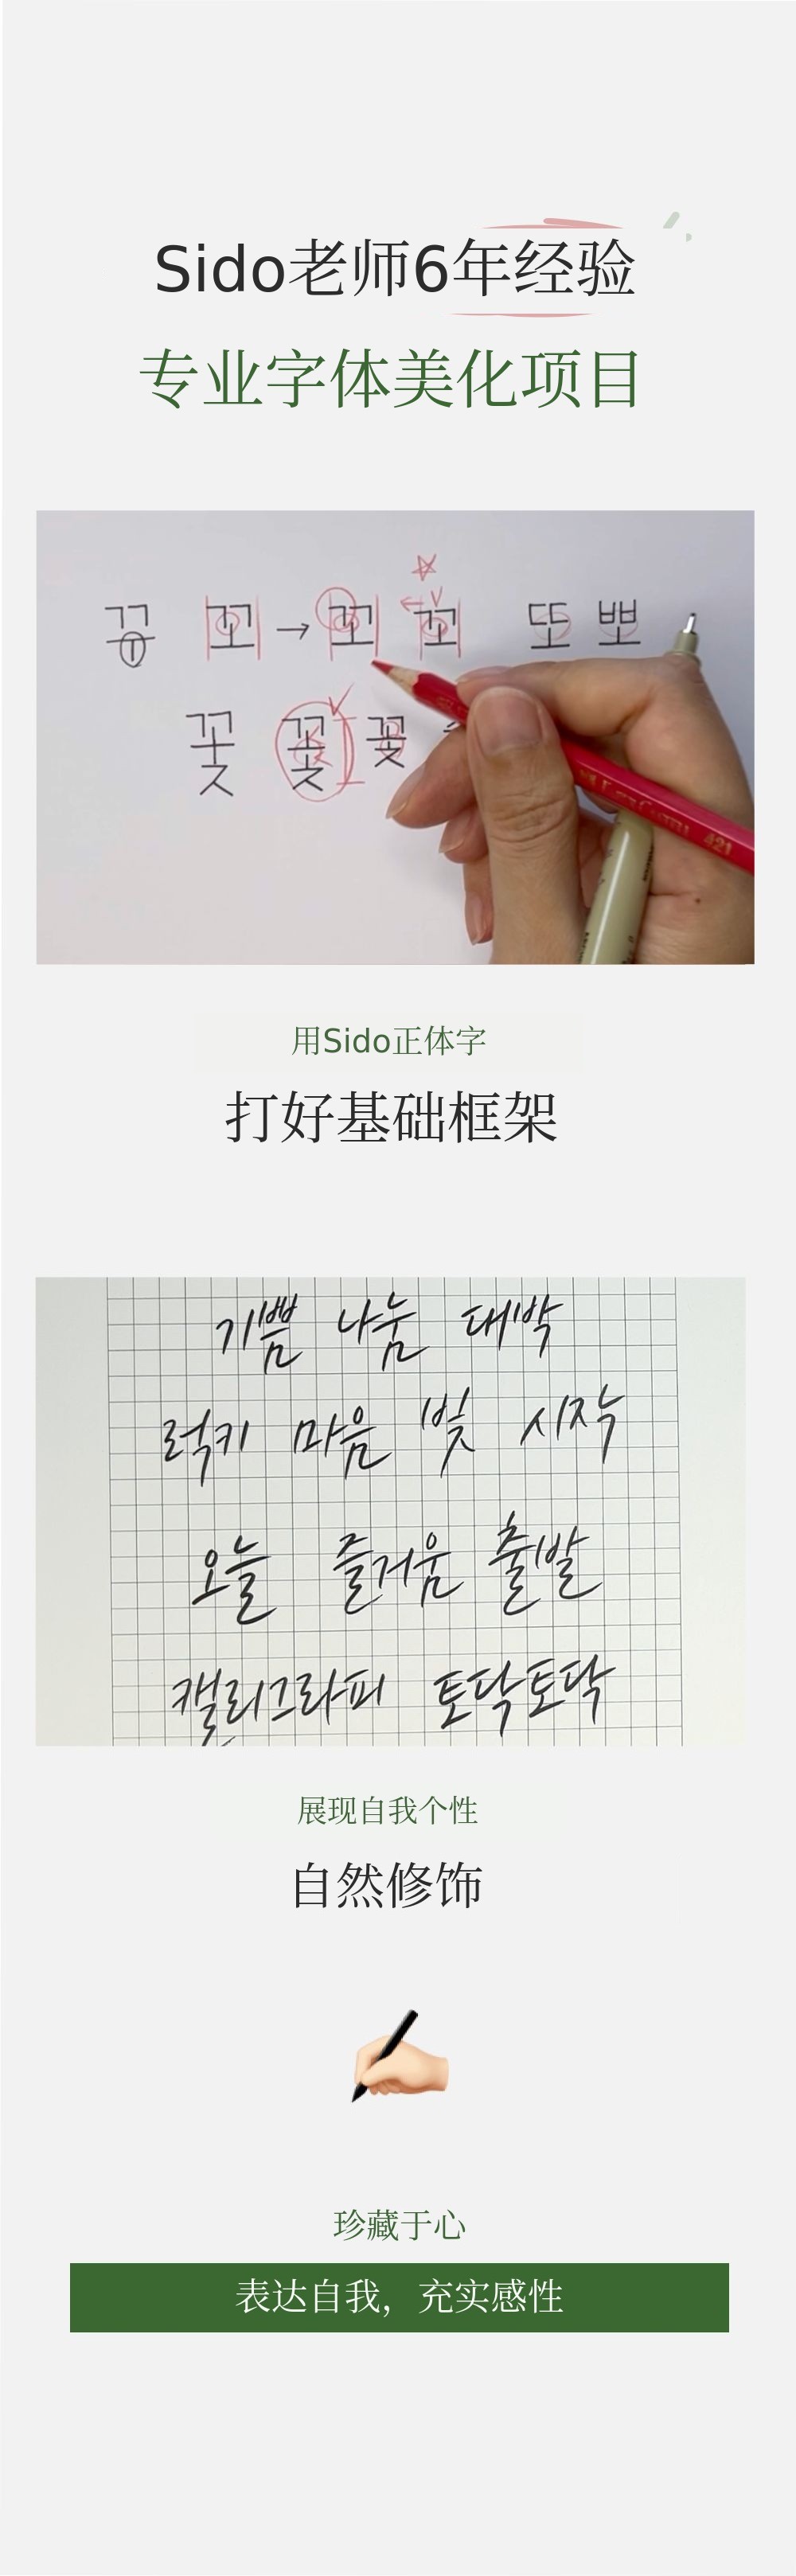 Sido老师6年经验
专业字体美化项目
꾸 꼬 → 꼬 꼬 또 뽀
꽃 꽃 꽃
421
用Sido正体字
打好基础框架
기쁨 나눔 대박
럭키 마음 빛 시작
오늘 즐거움 출발
캘리그라피 토닥토닥
展现自我个性
自然修饰
珍藏于心
表达自我，充实感性